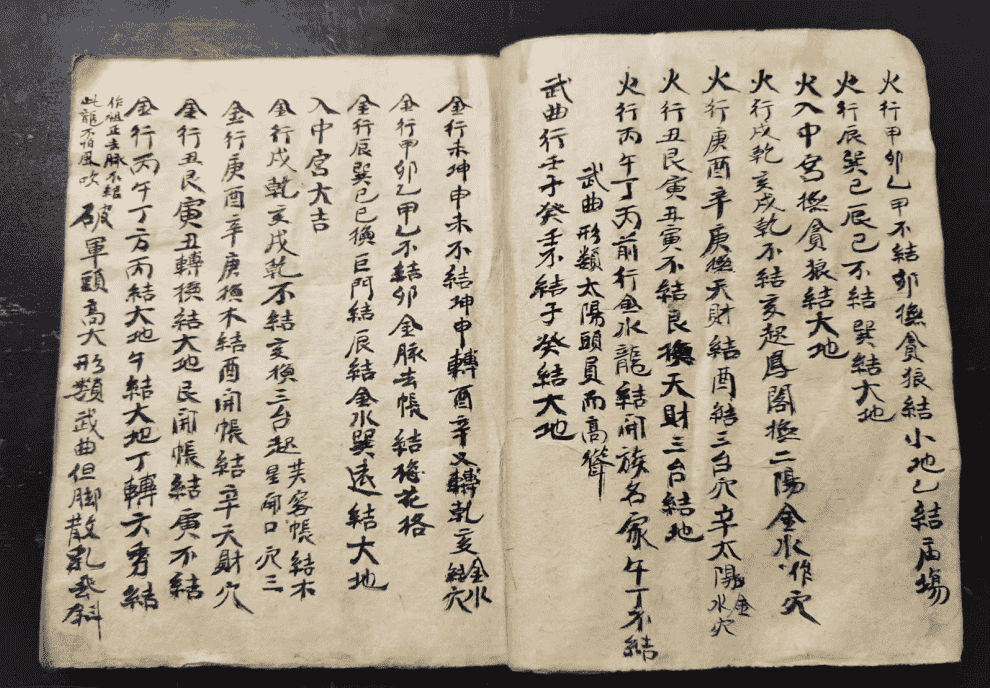 火行甲卯乙甲不結卯換貪狼結小地乙結庙塲
火行辰巽巳辰巳不結巽結大地
火入中宮換貪狼結大地
火行戌乾亥戌乾不結亥起鳳閣換二陽金水作穴
火行庚酉辛庚換天財結酉結三台穴辛太陽金水穴
火行丑艮寅丑寅不結艮換天財三台結地
火行丙午丁丙前行金水龍結開族名家午丁不結
武曲形類太陽頭員而高聳
武曲行壬子癸壬不結子癸結大地
金行未坤申未不結坤申轉酉辛又轉乾亥金水結穴
金行甲卯乙甲乙不結卯金脉去帳結梅花格
金行辰巽巳巳換巨門結辰結金水巽透結大地
入中宮大吉
金行戌乾亥戌乾不結亥換三台起芙蓉帳結木星開口穴三
金行庚酉辛庚換木結酉開帳結辛天財穴
金行丑艮寅丑轉換結大地艮開帳結寅不結
金行丙午丁方丙結大地午結大地丁轉六秀結
作祖正去脉不結此龍不怕風吹
破軍頭高大形類武曲但脚散乱歪斜